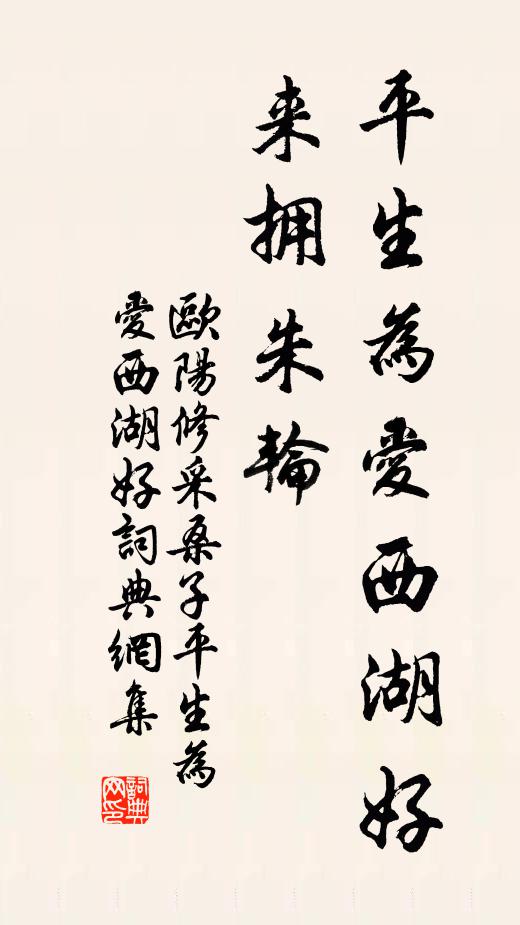 平生為愛西湖好
来拥朱輪
歐陽修采桑子平生為
愛西湖好詞典網集
詞典
网印